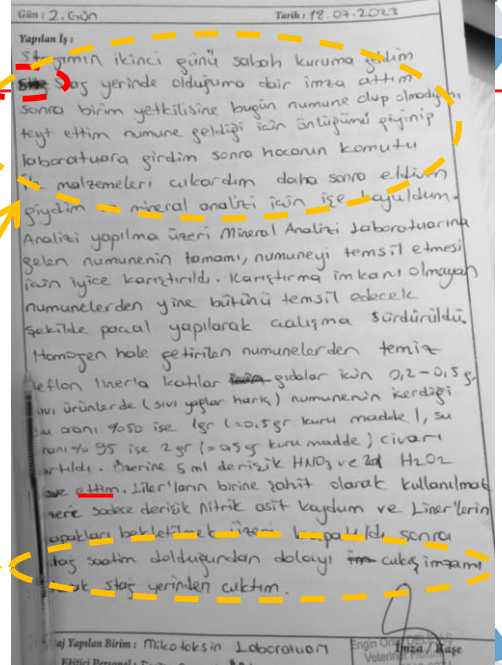 Gün : 2. Gün Tarih : 18.07.2023
Yapılan İş :
Stajımın ikinci günü sabah kuruma geldim
Staj yerinde olduğuma dair imza attım
sonra birim yetkilisine bugün numune olup olmadığını
teyt ettim numune geldiği için önlüğümü giyinip
laboratuara girdim sonra hocanın komutu
malzemeleri çıkardım daha sonra eldiven
giydim ve mineral analizi için işe koyuldum.
Analizi yapılma üzeri Mineral Analizi Laboratuarına
gelen numunenin tamamı, numuneyi temsil etmesi
için iyice karıştırıldı. Karıştırma imkanı olmayan
numunelerden yine bütünü temsil edecek
şekilde paçal yapılarak çalışma sürdürüldü.
Homojen hale getirilen numunelerden temiz
teflon linerla katılar gıdalar için 0,2-0,5 g,
sıvı ürünlerde (sıvı yağlar hariç) numunenin içerdiği
su oranı %50 ise 1gr (=0,5gr kuru madde), su
oranı % 95 ise 2 gr (=0,5 gr kuru madde) civarı
tartıldı. Üzerine 5 ml derişik HNO3 ve H2O2
ilave ettim. Liler'ların birine şahit olarak kullanılmak
üzere sadece derişik nitrik asit koydum ve Liner'lerin
kapakları bekletilmek üzere kapatıldı sonra
staj saatim dolduğundan dolayı çıkış imzamı
staj yerinden çıktım.
Staj Yapılan Birim : Mikotoksin Laboratuarı
İmza / Kaşe
Engin
Veteriner
Eğitici Personel :